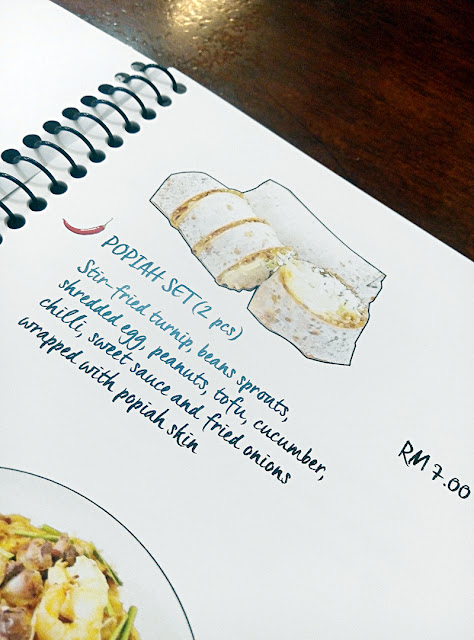 POPIAH SET (2 pcs)
Stir-fried turnip, beans sprouts,
shredded egg, peanuts, tofu, cucumber,
chilli, sweet sauce and fried onions
wrapped with popiah skin
RM 7.00